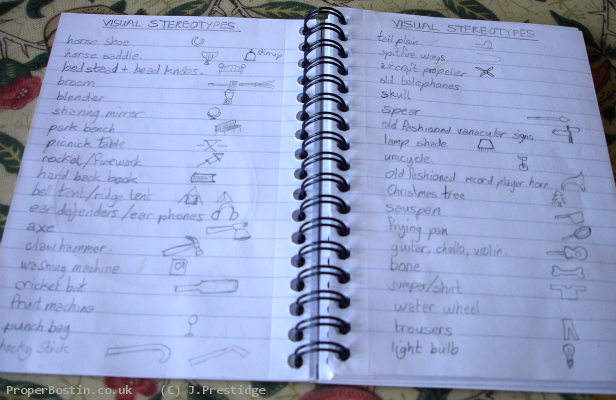 VISUAL STEREOTYPES
horse shoe
horse saddle stirrup
bedstead + bead knobs.
broom
blender
shaving mirror
park bench
picnick table
rocket/firework
hard back book
bell tent/ridge tent
ear defenders/ear phones
axe
claw hammer.
washing machine
cricket bat
fruit machine
punch bag
hockey stick
VISUAL STEREOTYPES
tail plain
spitfire wings.
aircraft propeller
old telephones
skull
spear
old fashioned vanacular signs
lamp shade
unicycle
old fashioned record player horn
Christmas tree
seuspan
frying pan
guitar, challo, violin.
bone
jumper/shirt
water wheel
trousers
light bulb
ProperBostin.co.uk (C) J.Prestidge